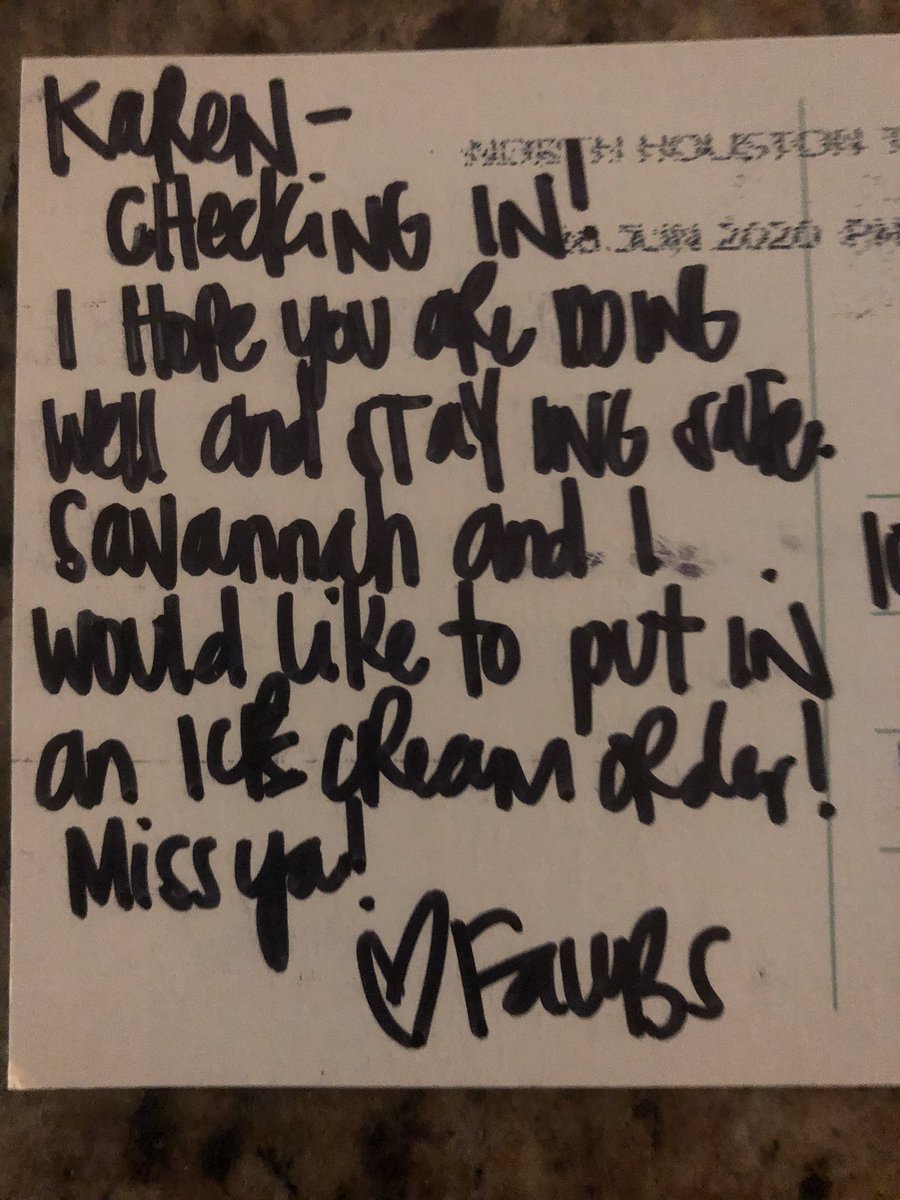 Karen-
NORTH HOUSTON
Checking in!
JUN 2020 PM
I hope you are doing
well and staying safe.
Savannah and I
would like to put in
an ice cream order!
Miss ya!
♡ Faubs